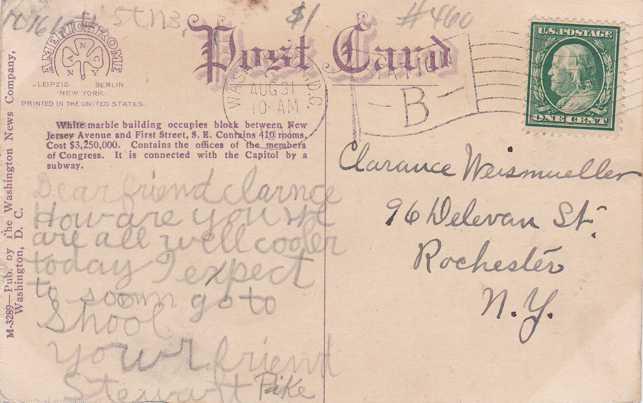 $1
#460
AMERICHROME
LEIPZIG BERLIN
NEW YORK
PRINTED IN THE UNITED STATES.
Post Card
WASHINGTON, D.C.
AUG 31
10-AM
B
U.S. POSTAGE
ONE CENT
White marble building occupies block between New
Jersey Avenue and First Street, S. E. Contains 410 rooms.
Cost $3,250,000. Contains the offices of the members
of Congress. It is connected with the Capitol by a
subway.
M-3289—Pub. by The Washington News Company,
Washington, D. C.
Dear friend Clarnce
How are you we
are all well cooler
today I expect
to soon go to
Shool
your friend
Stewart Pike
Clarance Weismueller
96 Delevan St.
Rochester
N.Y.